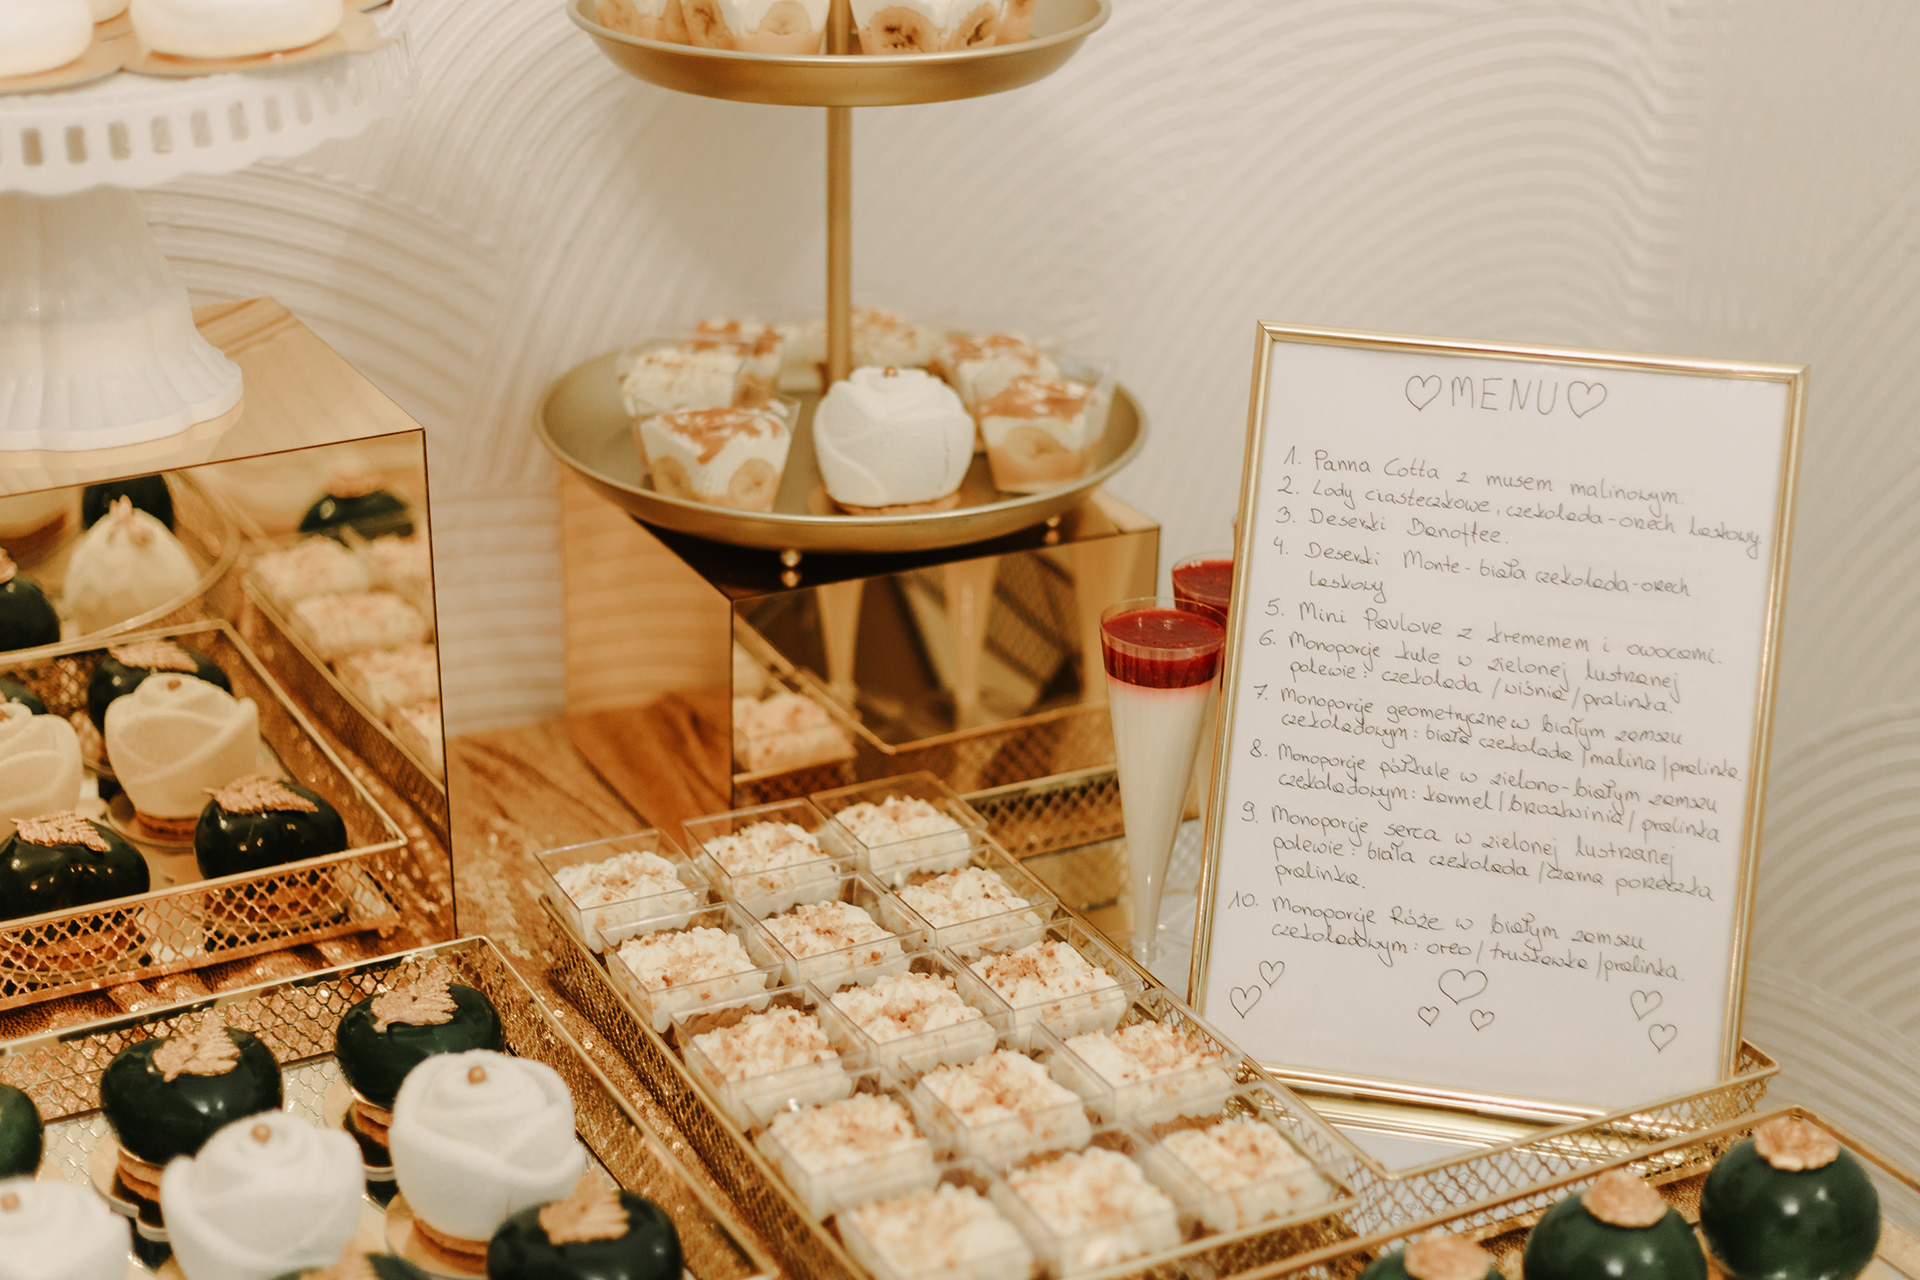 ♡MENU♡
1. Panna Cotta z musem malinowym.
2. Lody ciasteczkowe, czekolada-orzech laskowy.
3. Deserki Banoffee.
4. Deserki Monte-biała czekolada-orzech
laskowy
5. Mini Pavlove z krememem i owocami.
6. Monoporcje kule w zielonej lustrzanej
polewie: czekolada/wiśnia/pralinka.
7. Monoporcje geometryczne w białym zamszu
czekoladowym: biała czekolada/malina/pralinka.
8. Monoporcje półkule w zielono-białym zamszu
czekoladowym: karmel/brzoskwinia/pralinka
9. Monoporcje serca w zielonej lustrzanej
polewie: biała czekolada/czarna porzeczka
pralinka.
10. Monoporcje Róże w białym zamszu
czekoladowym: oreo/truskawka/pralinka.